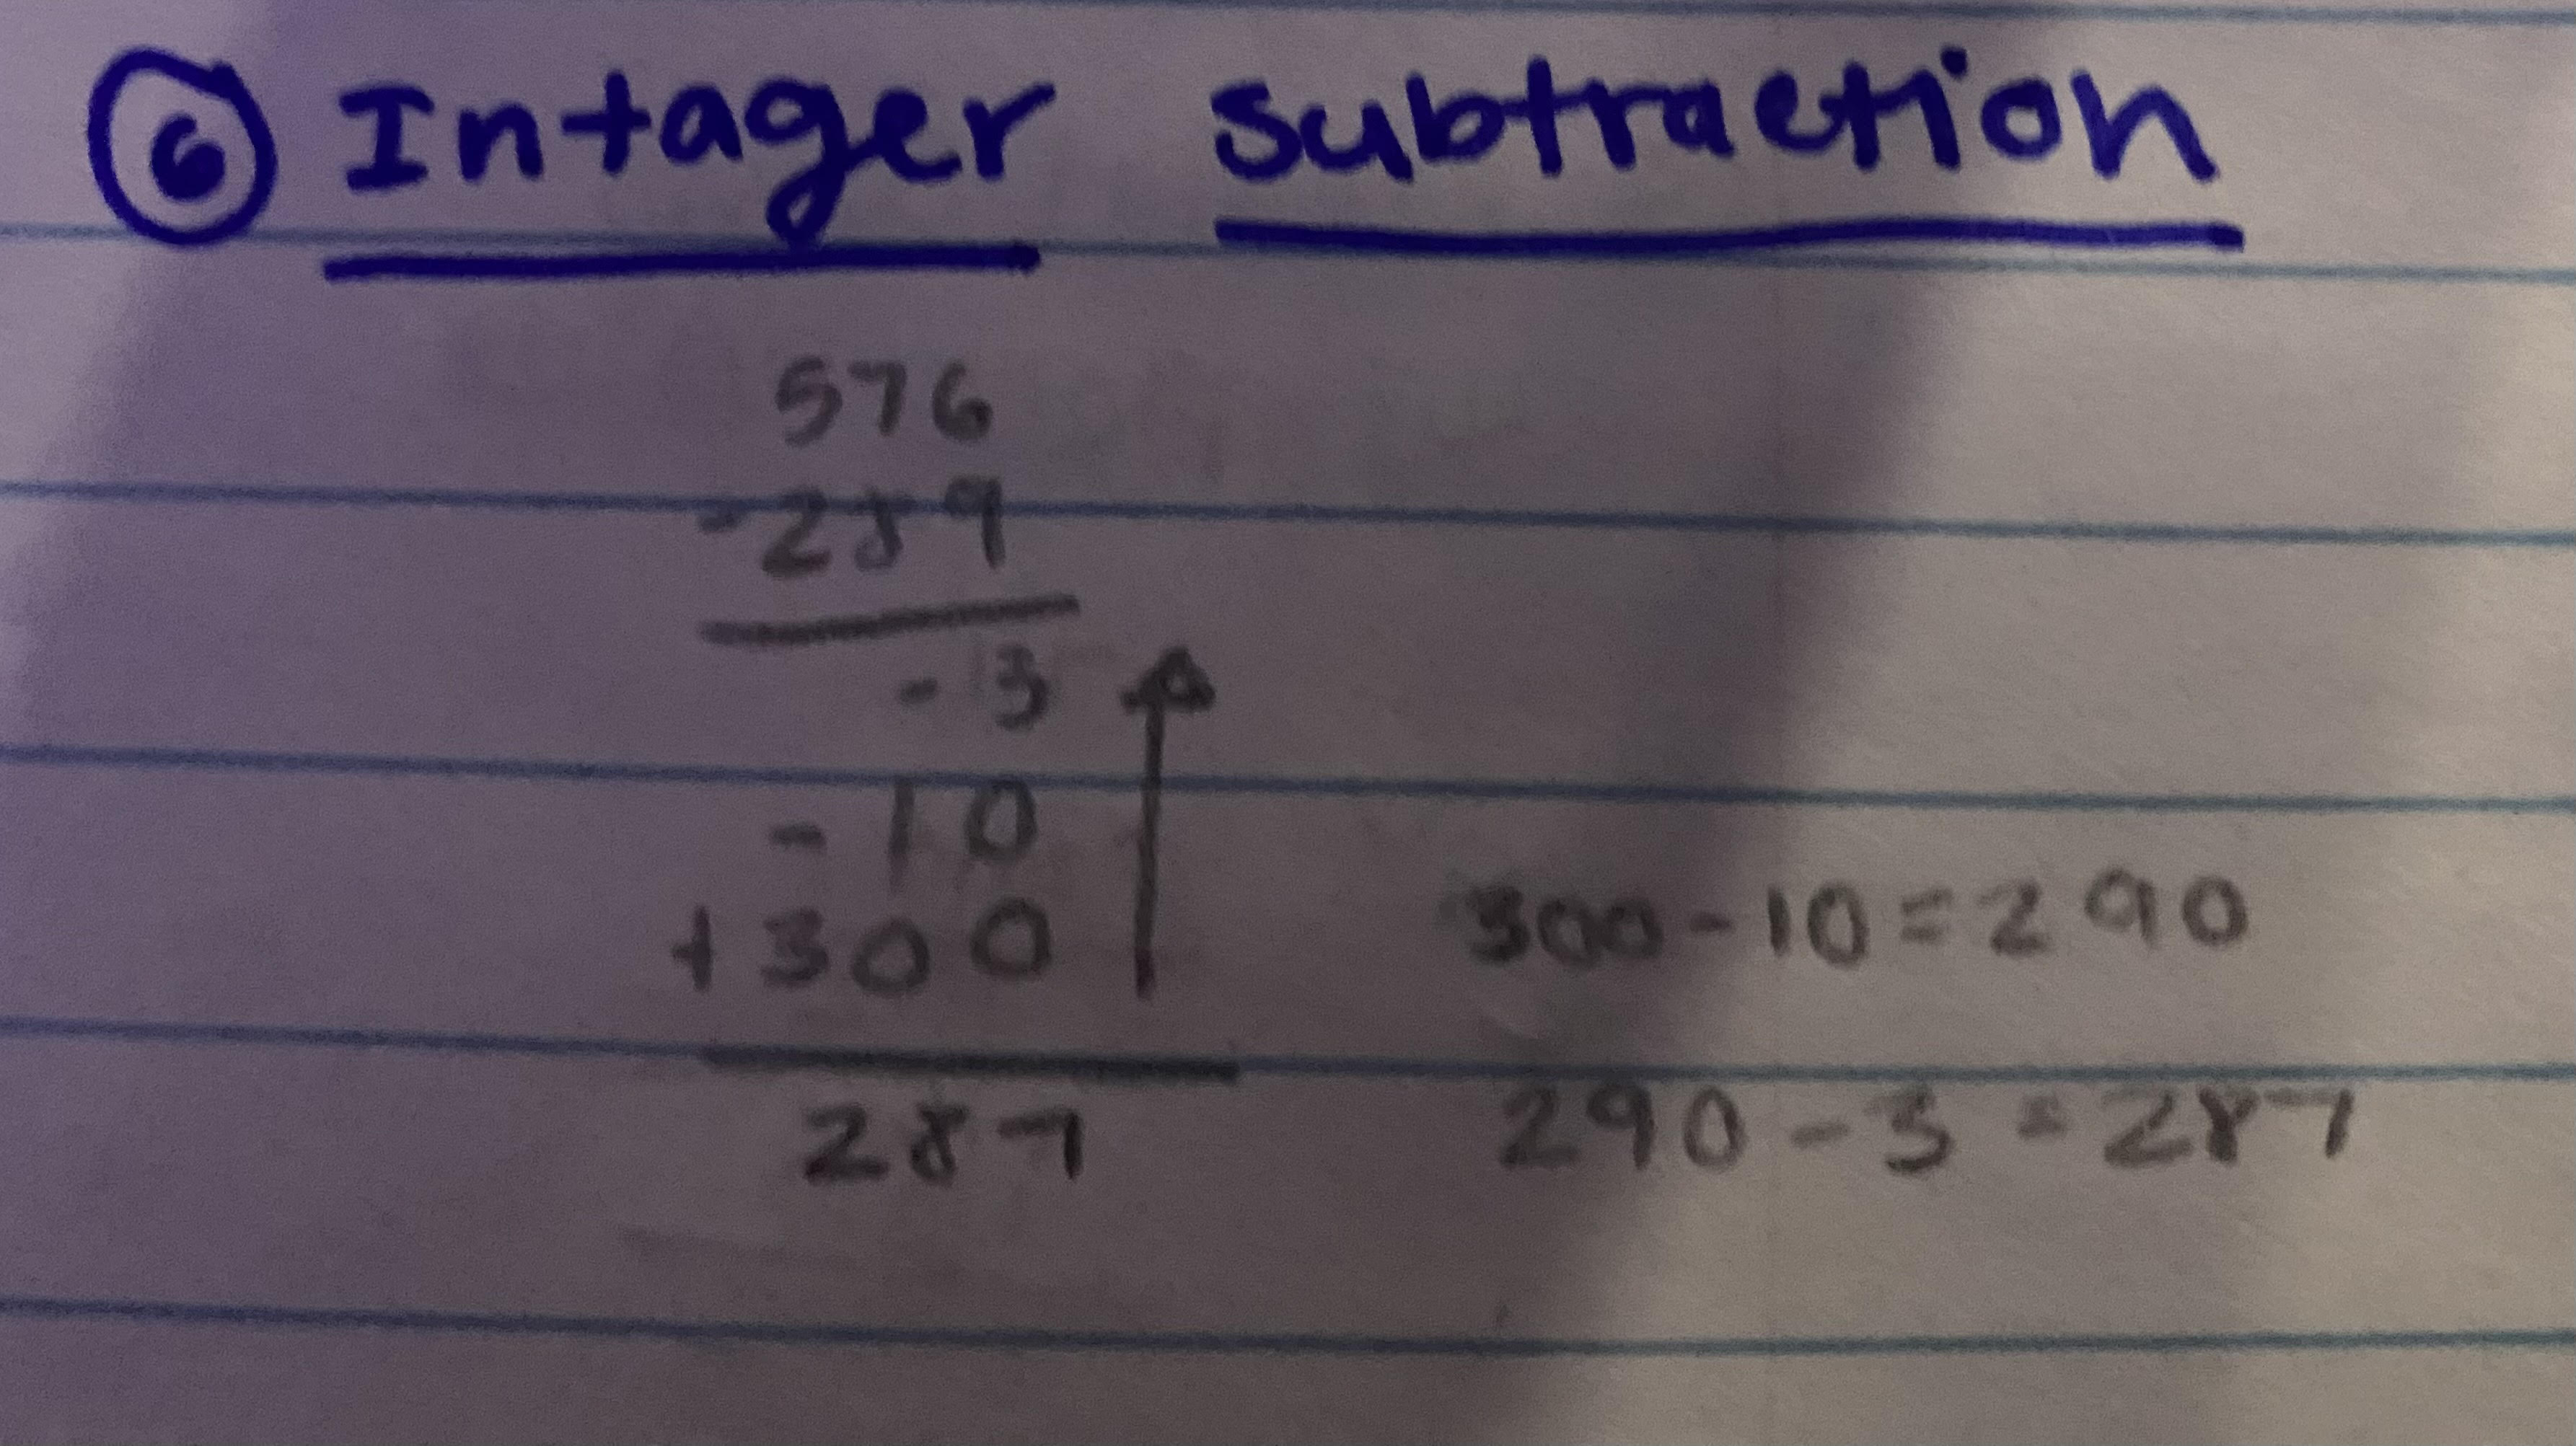 6 Intager Subtraction
576
-289
-3
-10
+300 300-10=290
287 290-3=287